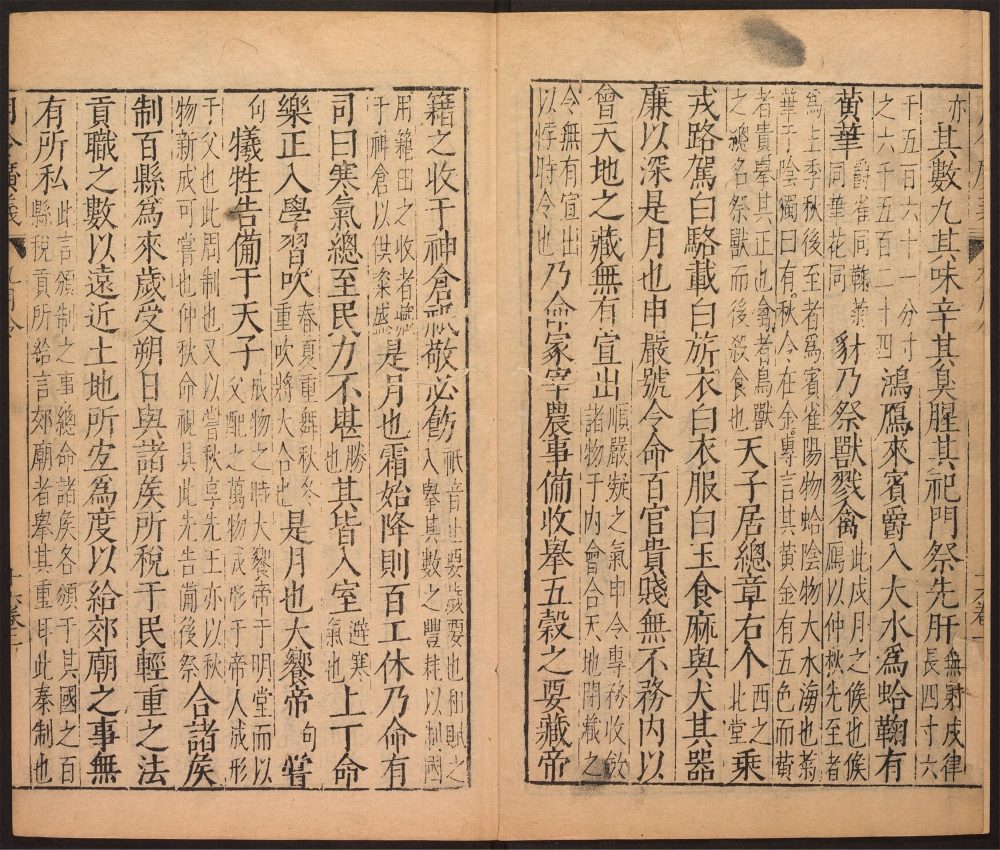 亦其數九其味辛其臭腥其祀門祭先肝無射戌律長四寸六
千五百六十一分寸之六千五百二十四鴻鴈來賓爵入大水爲蛤鞠有
黄華爵雀同鞠菊同華花同豺乃祭獸戮禽此戌月之候也候鴈以仲秋先至者
爲主季秋後至者爲賓雀陽物蛤陰物大水海也菊華于陰獨曰有秋令在金專言其黄金有五色而黄
者貴擧其正也禽者鳥獸之總名祭獸而後殺食也天子居總章右个西之北堂乘
戎路駕白駱載白旂衣白衣服白玉食麻與犬其器
廉以深是月也申嚴號令命百官貴賤無不務内以
會天地之藏無有宣出順嚴凝之氣申令專務收斂諸物于内會合天地閉藏之
令無有宣出以悖時令也乃命冢宰農事備收擧五穀之要藏帝
籍之收于神倉祇敬必飭祇音止要歳要也租賦之入擧其數之豐耗以制國
用籍田之收者藏于神倉以供粢盛是月也霜始降則百工休乃命有
司曰寒氣總至民力不堪勝也其皆入室避寒氣也上丁命
樂正入學習吹春夏重舞秋冬重吹將大合也是月也大饗帝句嘗
句犧牲告備于天子成物之時大饗帝于明堂而以父配之萬物成形于帝人成形
于父也此周制也又以嘗秋享先王亦以秋物新成可嘗也仲秋命視具此先告備後祭合諸侯
制百縣爲來歳受朔日與諸侯所稅于民輕重之法
貢職之數以遠近土地所宜爲度以給郊廟之事無
有所私此言頒制之事總命諸侯各頒于其國之百縣稅貢所給言郊廟者擧其重耳此秦制也
月令廣義